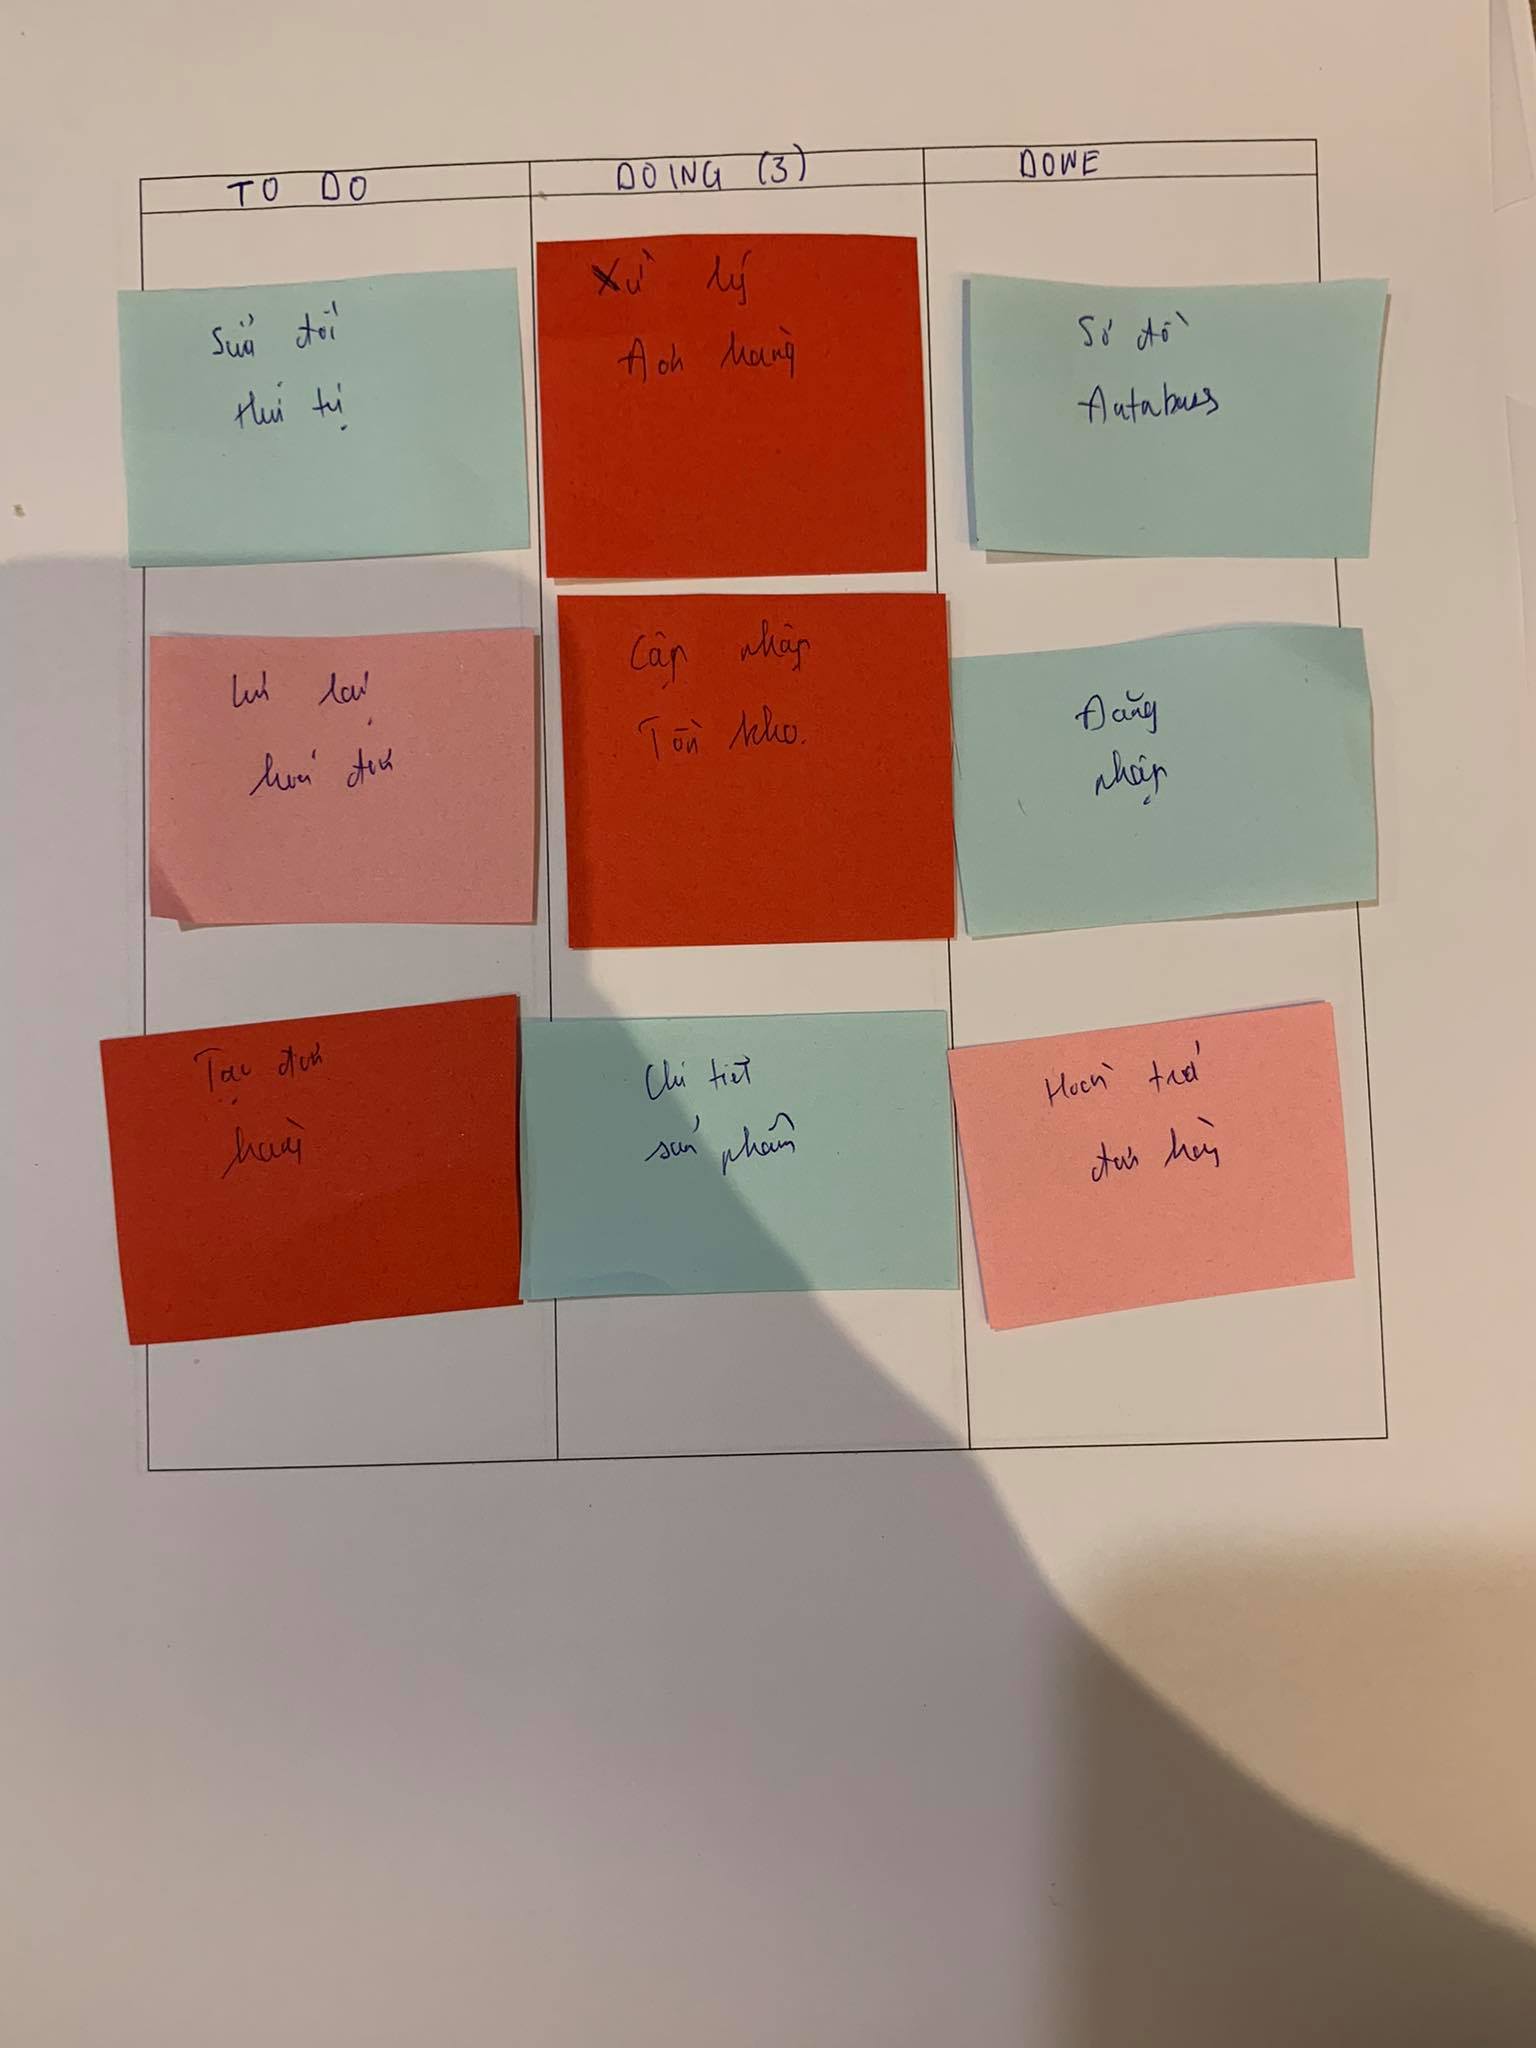 TO DO
DOING (3)
DONE
Sửa đổi
thứ tự
Xử lý
Đơn hàng
Sơ đồ
Database
lại
hoá đơn
Cập nhập
Tồn kho.
Đăng
nhập
Tạo đơn
hàng
Chi tiết
sản phẩm
Hoàn trả
đơn hàng